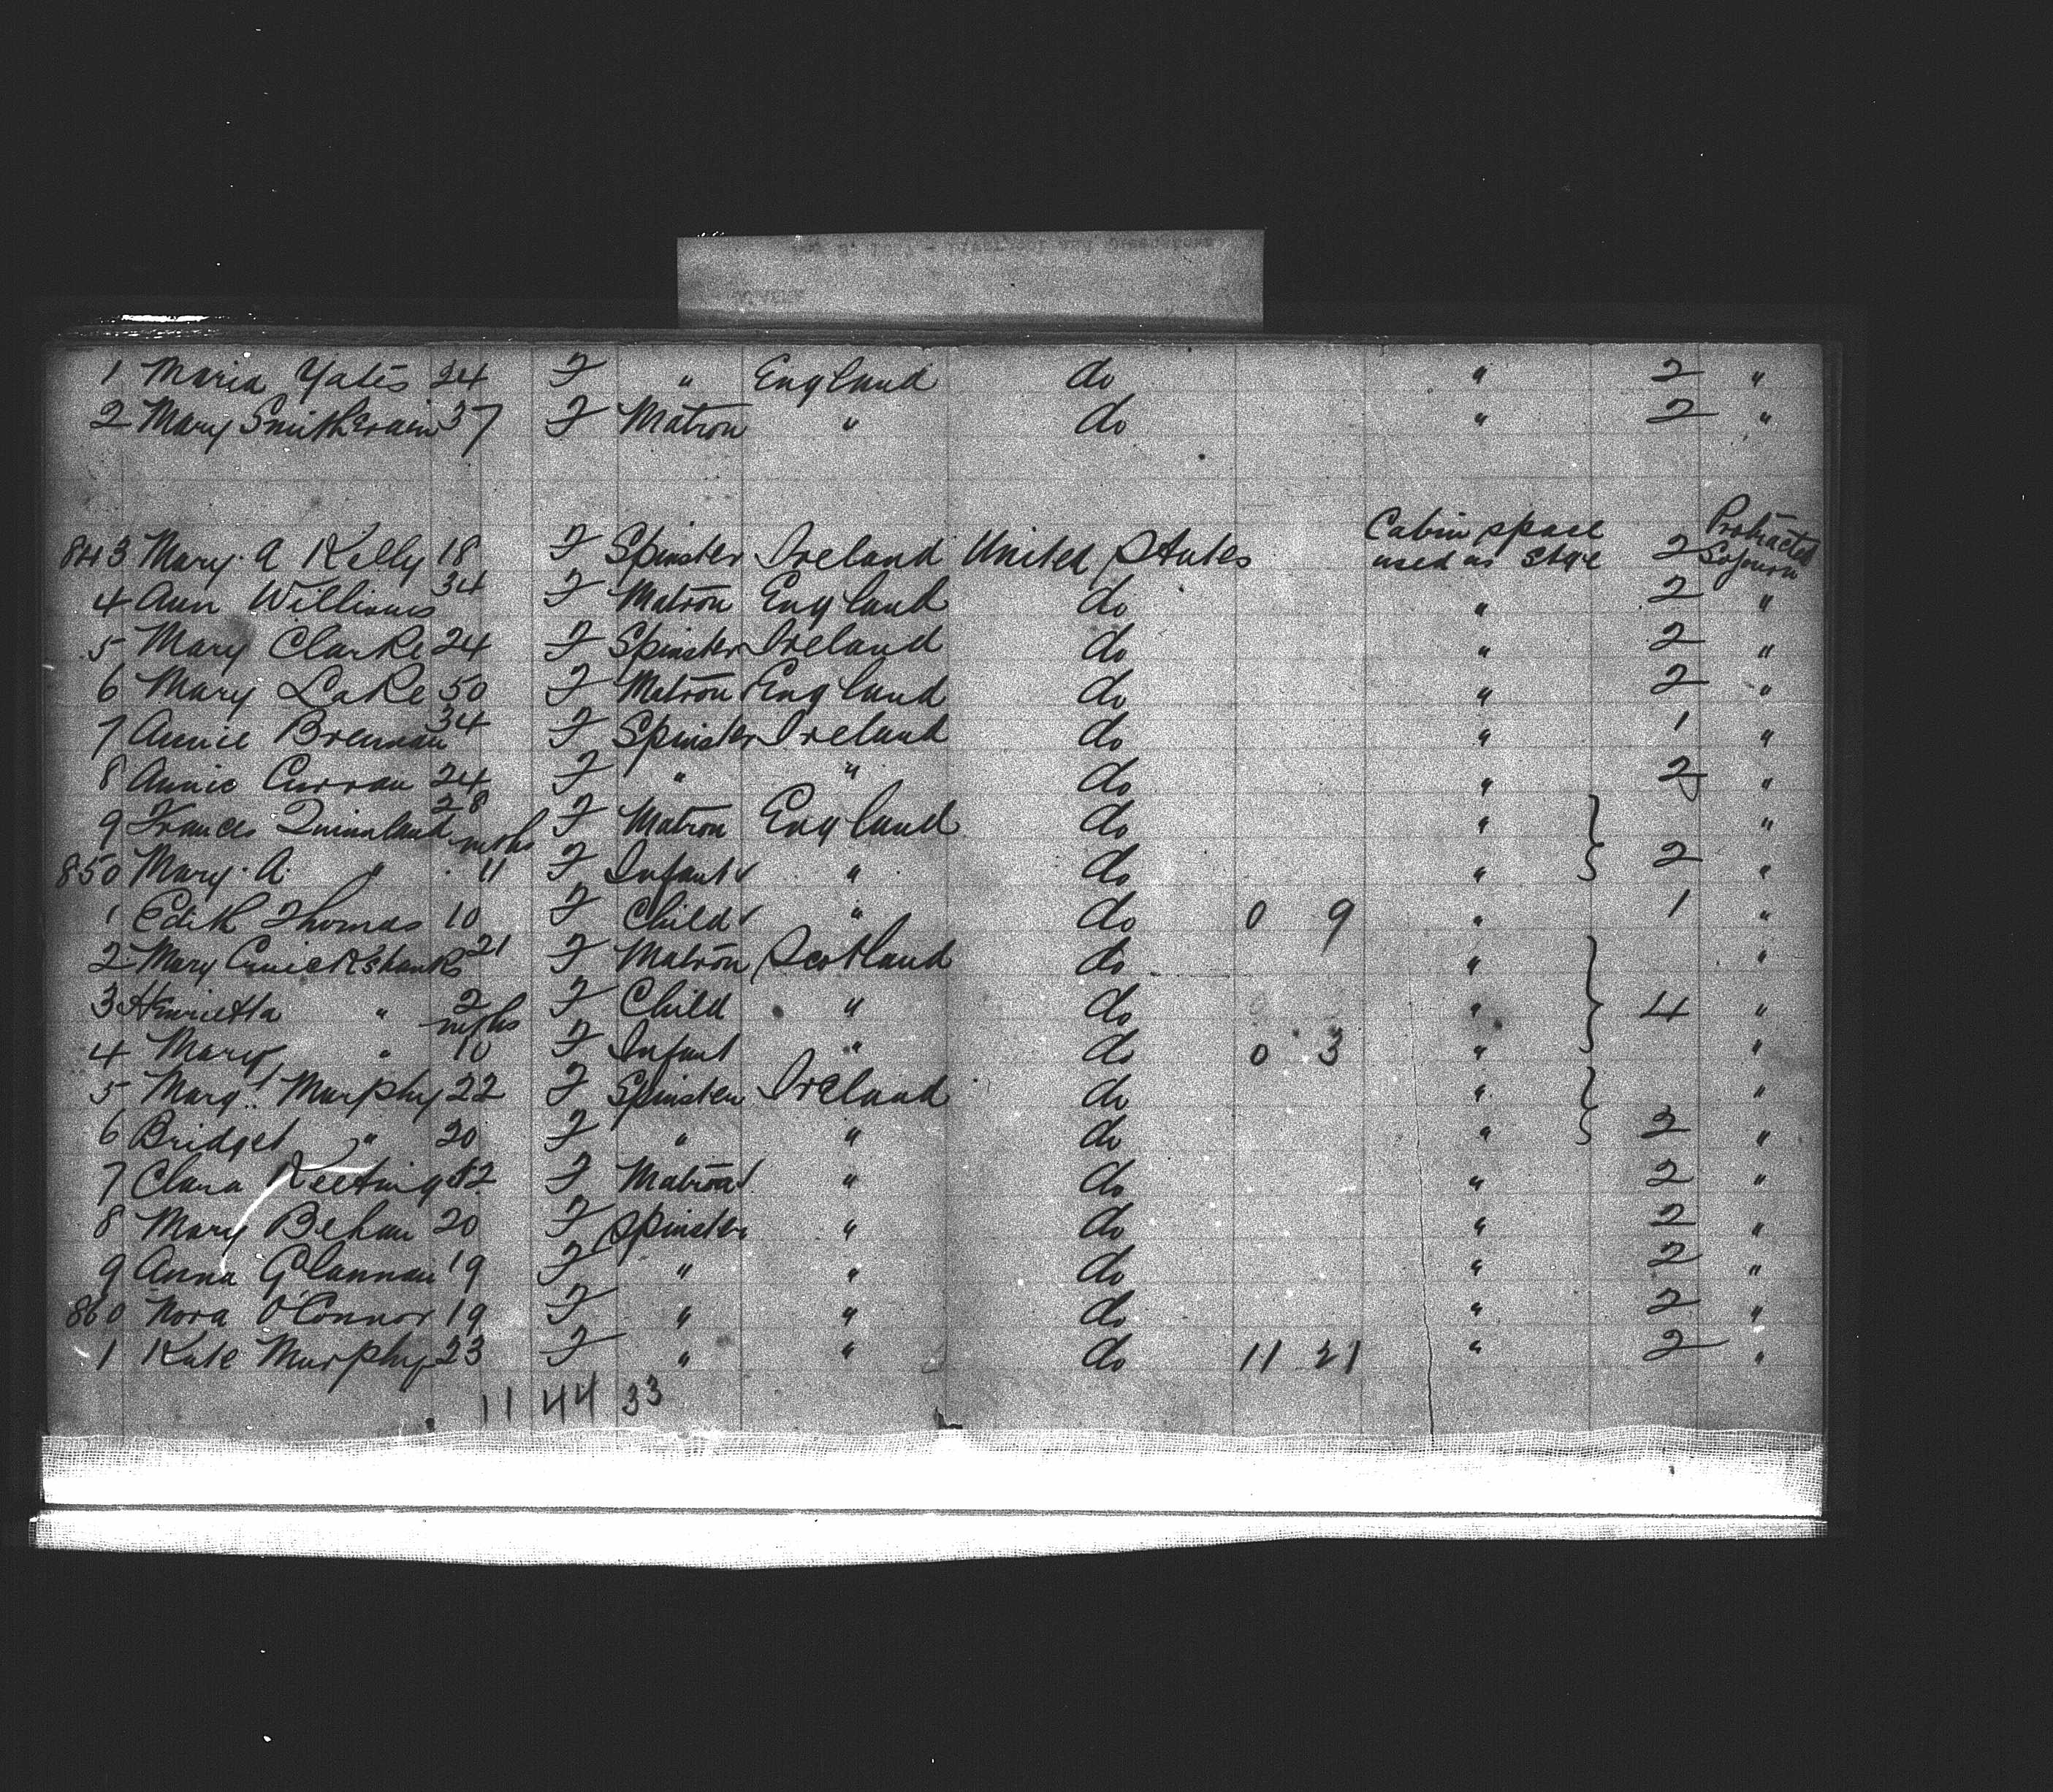 1 Maria Yates 24 F " England do " 2 "
2 Mary Smitherain 37 F Matron " do " 2 "
843 Mary A Kelly 18 F Spinster Ireland United States Cabin space used as Stge 2 Protracted Sojourn
4 Ann Williams 34 F Matron England do " 2 "
5 Mary Clarke 24 F Spinster Ireland do " 2 "
6 Mary Lake 50 F Matron England do " 2 "
7 Annie Brennan 34 F Spinster Ireland do " 1 "
8 Annie Curran 24 F " " do " 2 "
9 Frances Quinnland 28 F Matron England do " "
850 Mary A. " mths 11 F Infant " do " 2 "
1 Edith Thomas 10 F Child " do 0 9 " 1 "
2 Mary Cruickshanks 21 F Matron Scotland do " "
3 Henrietta " 2 F Child " do " 4 "
4 Mary " mths 10 F Infant " do 0 3 " "
5 Margt Murphy 22 F Spinster Ireland do " "
6 Bridget " 20 F " " do " 2 "
7 Clara Keeting 52 F Matron " do " 2 "
8 Mary Behan 20 F Spinster " do " 2 "
9 Anna Glannan 19 F " " do " 2 "
860 Nora O'Connor 19 F " " do " 2 "
1 Kate Murphy 23 F " " do 11 21 " 2 "
11 44 33